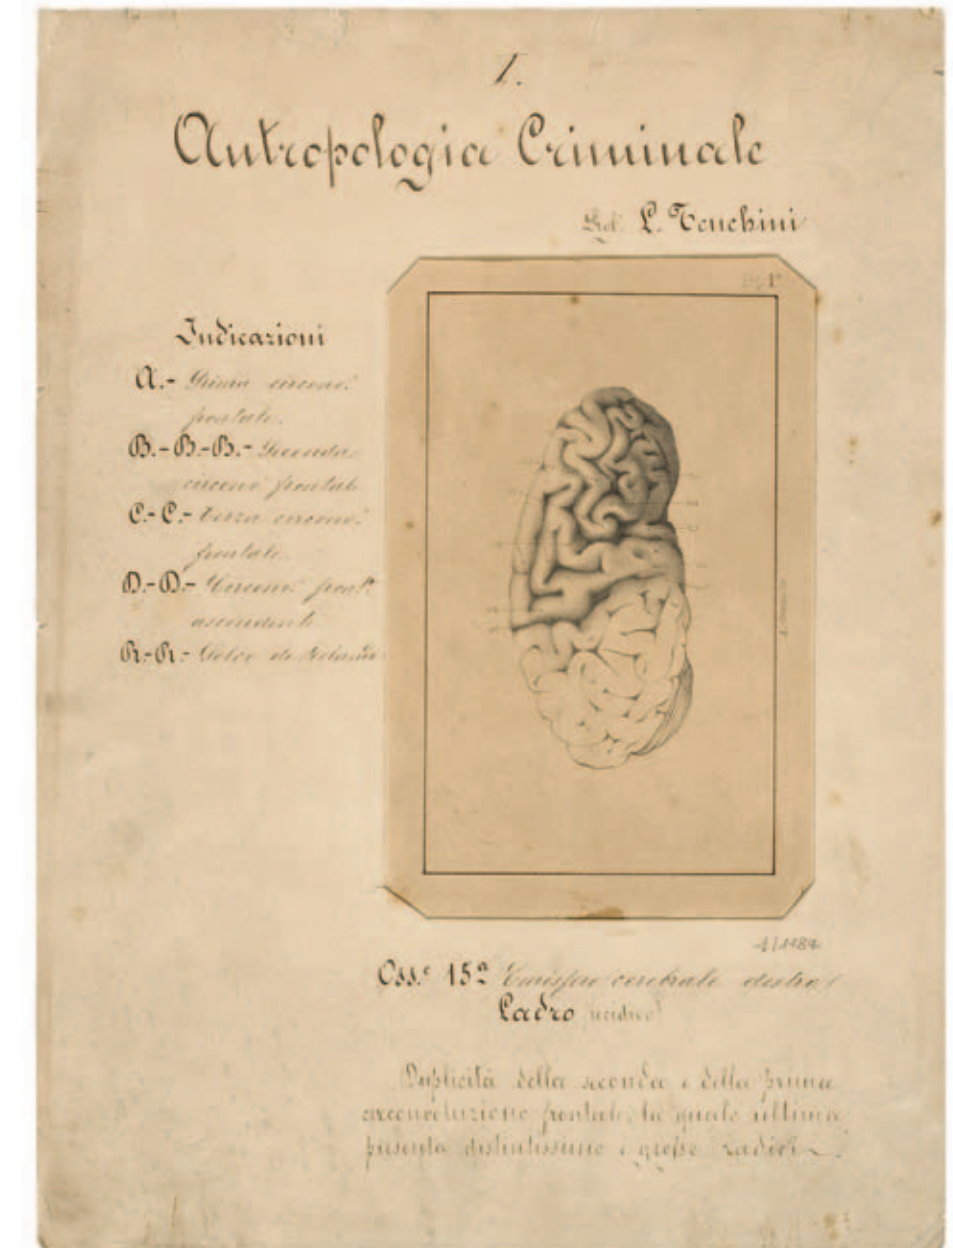 I.
Antropologia Criminale
L. Tenchini
Indicazioni
A.- Prima circonv.
frontale.
B.-B.-B.- Seconda
circonv. frontale
C.-C.- terza circonv.
frontale.
D.-D.- Circonv. front.
ascendente
R.-R.- Solco di Rolando
Oss.e 15a Emisfero cerebrale destro
Ladro recidivo
Duplicità della seconda e della prima
circonvoluzione frontale, la quale ultima
presenta distintissime e grosse radici